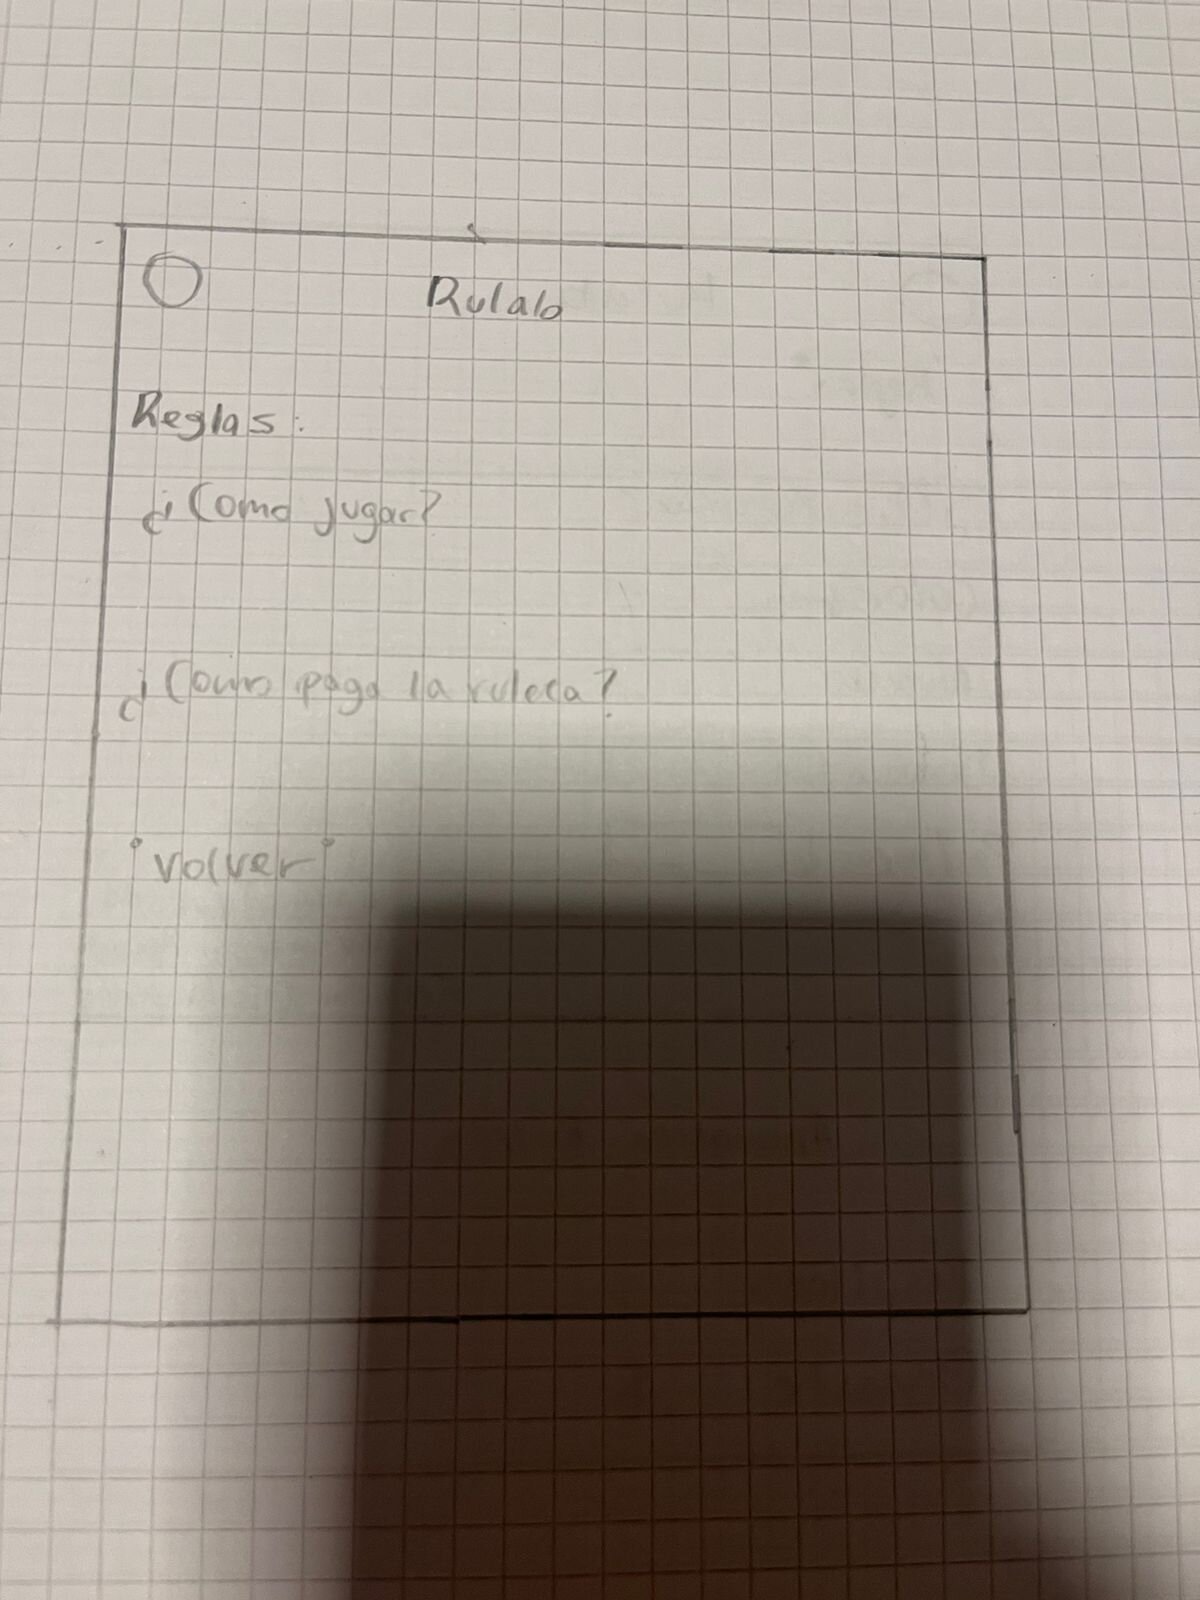 Rulalo
Reglas:
¿Como jugar?
¿Como paga la ruleta?
"volver"